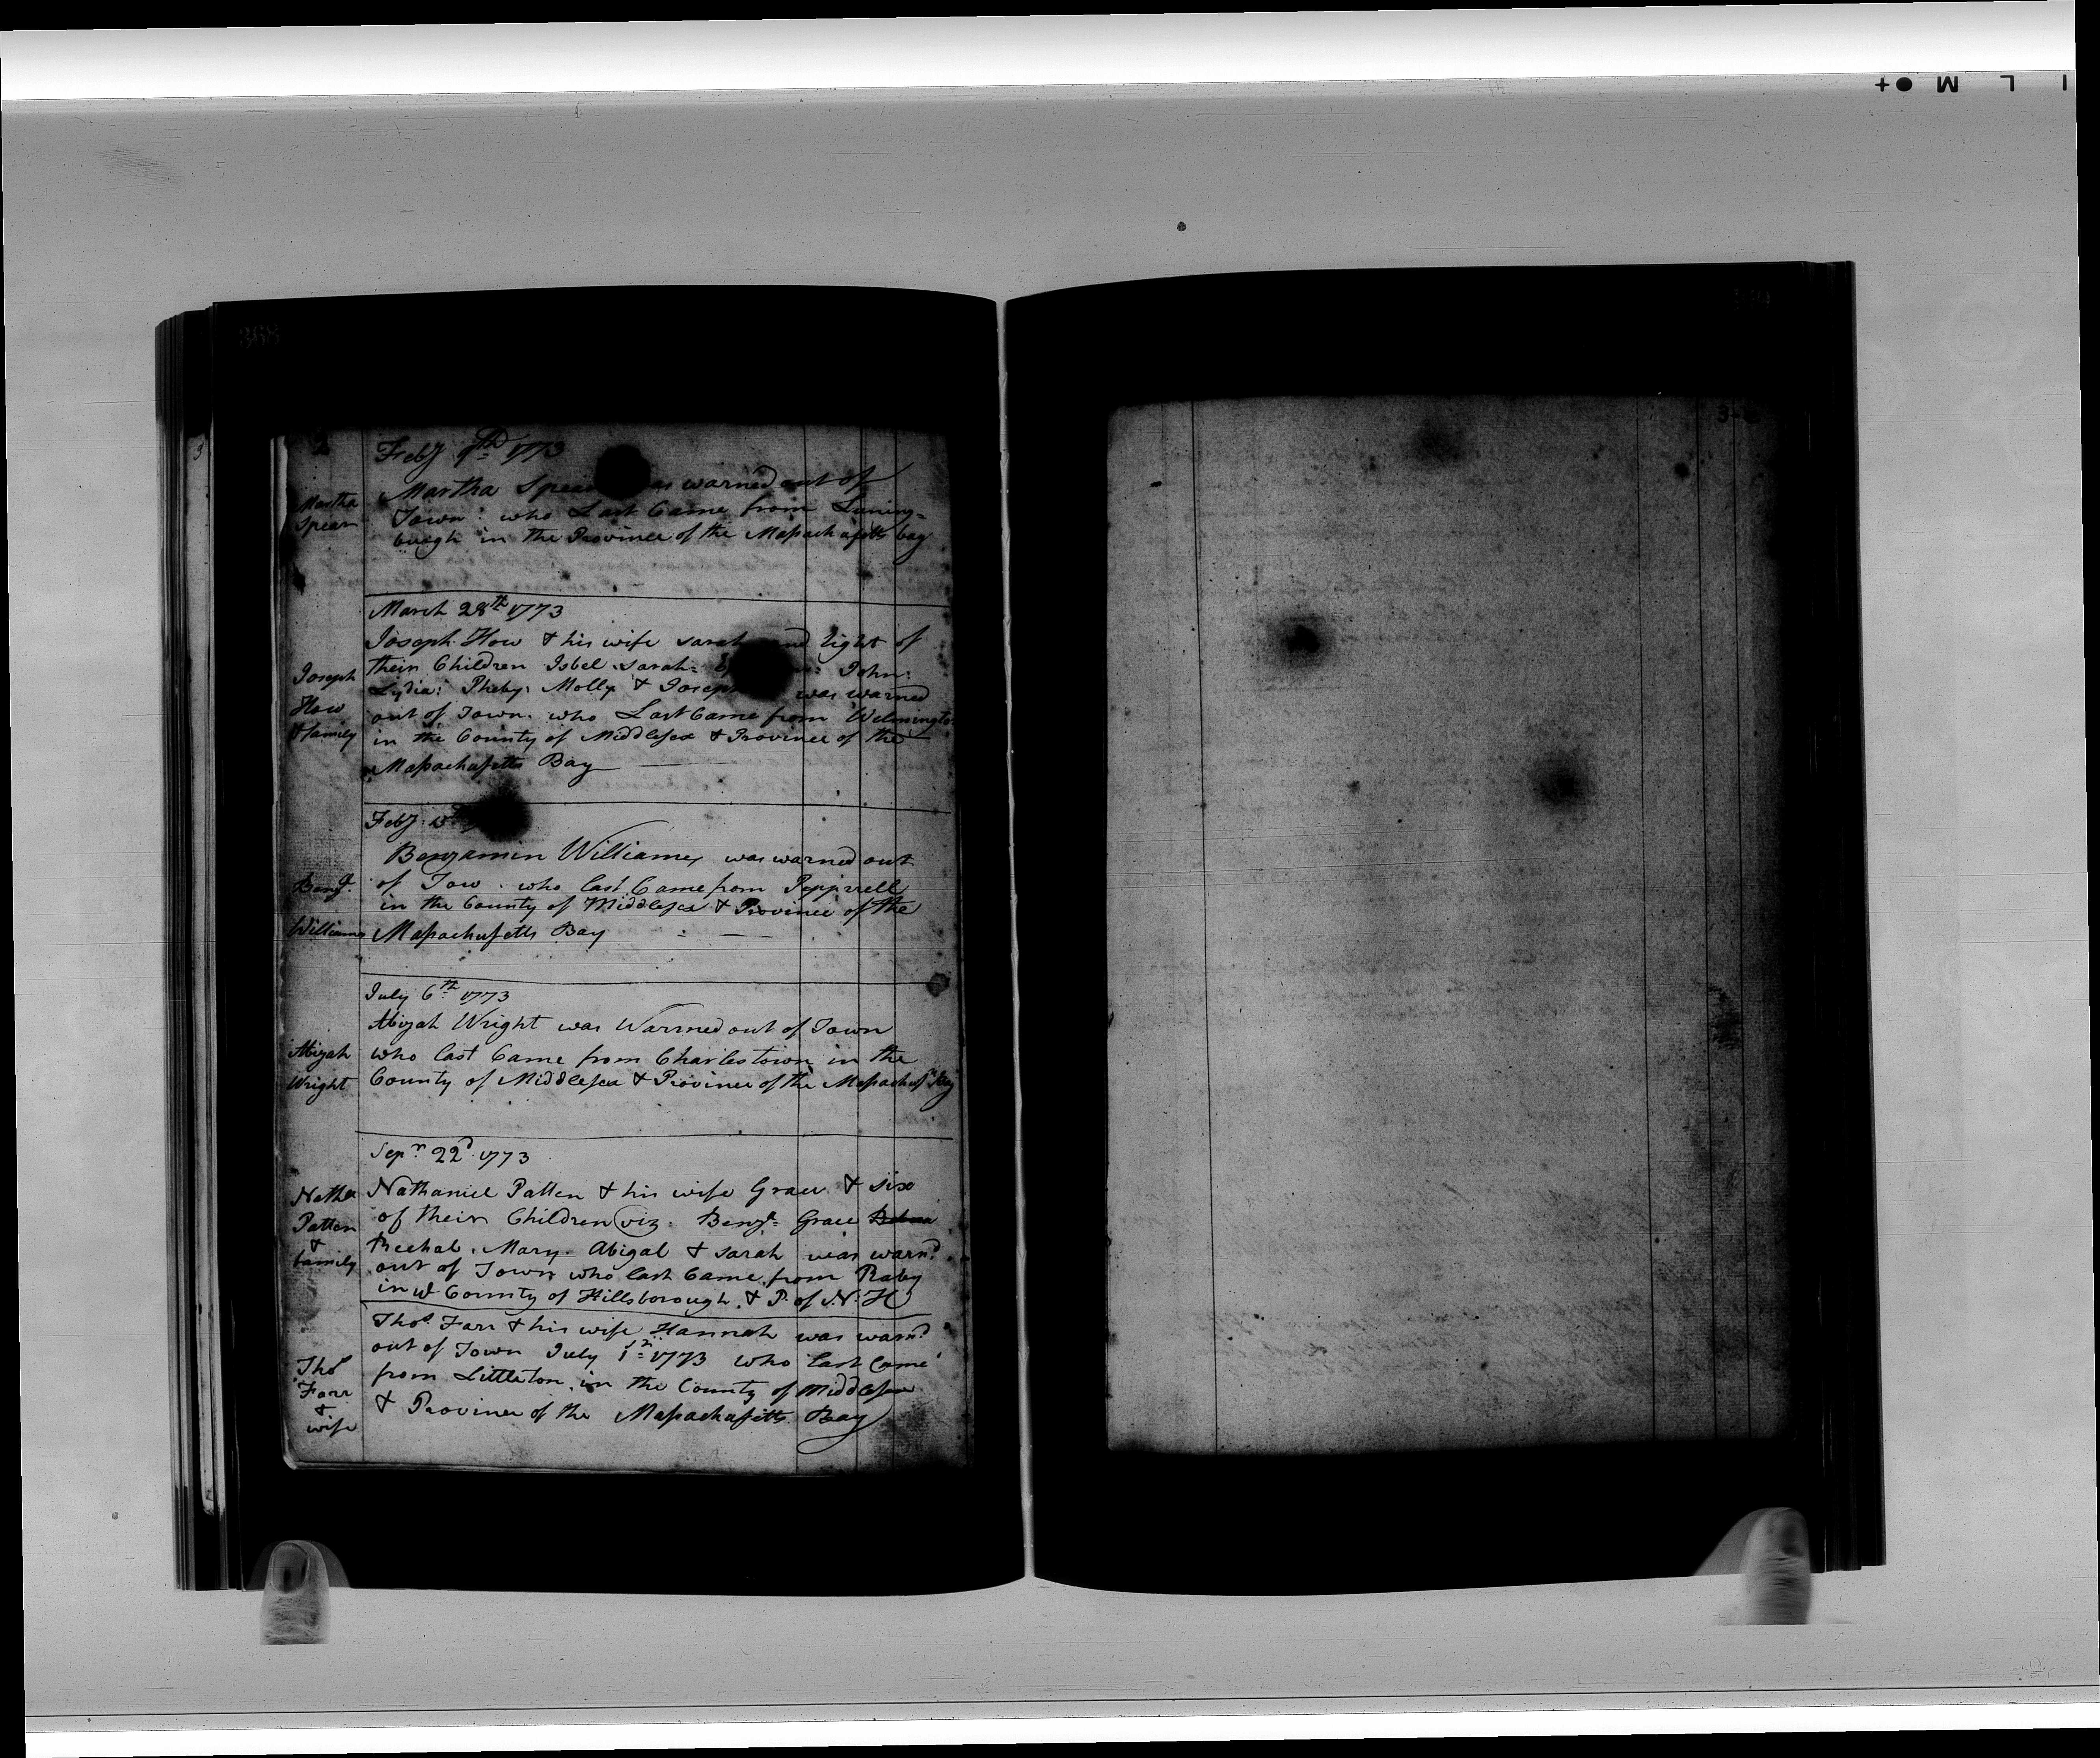 Feby 9th 1773
Martha Spear as warned out of
Town: who Last Came from Luning=
burgh in the Province of the Massachusetts bay
Martha
Spear
March 28th 1773
Joseph How & his wife sarah and Eight of
their Children Isbel sarah= John:
Lydia: Pheby: Molly & Joseph was warned
out of Town. who Last Came from Welmington
in the County of Middlesex & Province of the
Massachusetts Bay
Joseph
How
& family
Feby 15th
Benjamin Williams was warned out
of Tow. who last Came from Pepprrell
in the County of Middlesex & Province of the
Massachusetts Bay
Benja.
Williams
July 6th 1773
Abijah Wright was Warned out of Town
who last Came from Charlestown in the
County of Middlesex & Province of the Massachusts Bay
Abijah
Wright
Sepr 22d 1773
Nathaniel Patten & his wife Grace & six
of their Children viz. Benja= Grace
Rechal. Mary. Abigal & sarah was warnd
out of Town who last Came from Raby
in ye County of Hillsborough. & P. of N. H
Patten
&
family
Thos Farr & his wife Hannah was warnd
out of Town July 1st 1773 who last Came
from Littleton in the County of Middlesex
& Province of the Massachusetts Bay
Thos
Farr
&
wife